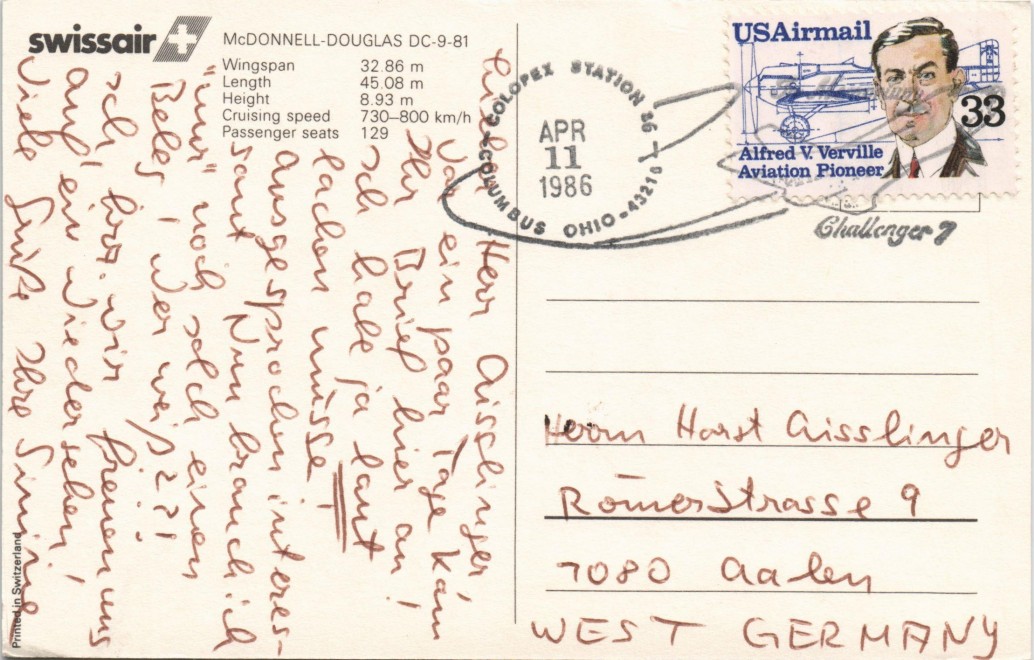 swissair
McDONNELL-DOUGLAS DC-9-81
Wingspan 32.86 m
Length 45.08 m
Height 8.93 m
Cruising speed 730–800 km/h
Passenger seats 129
Lieber Herr Aisslinger,
Vor ein paar Tage kam
Ihr Brief hier an!
Ich habe ja laut
lachen müsse
ausgesprochen interes-
sant Nun brauch ich
"nur" noch solch einen
Beleg, wer weiß??!
Ich bzw. wir freuen uns
auf ein Wiedersehen!
Viele Grüße Ihre
Printed in Switzerland
COLOPEX STATION 86
APR
11
1986
COLUMBUS OHIO - 43216
USAirmail
33
Alfred V. Verville
Aviation Pioneer
Challenger 7
Herrn Horst Aisslinger
Römerstrasse 9
7080 Aalen
WEST GERMANY